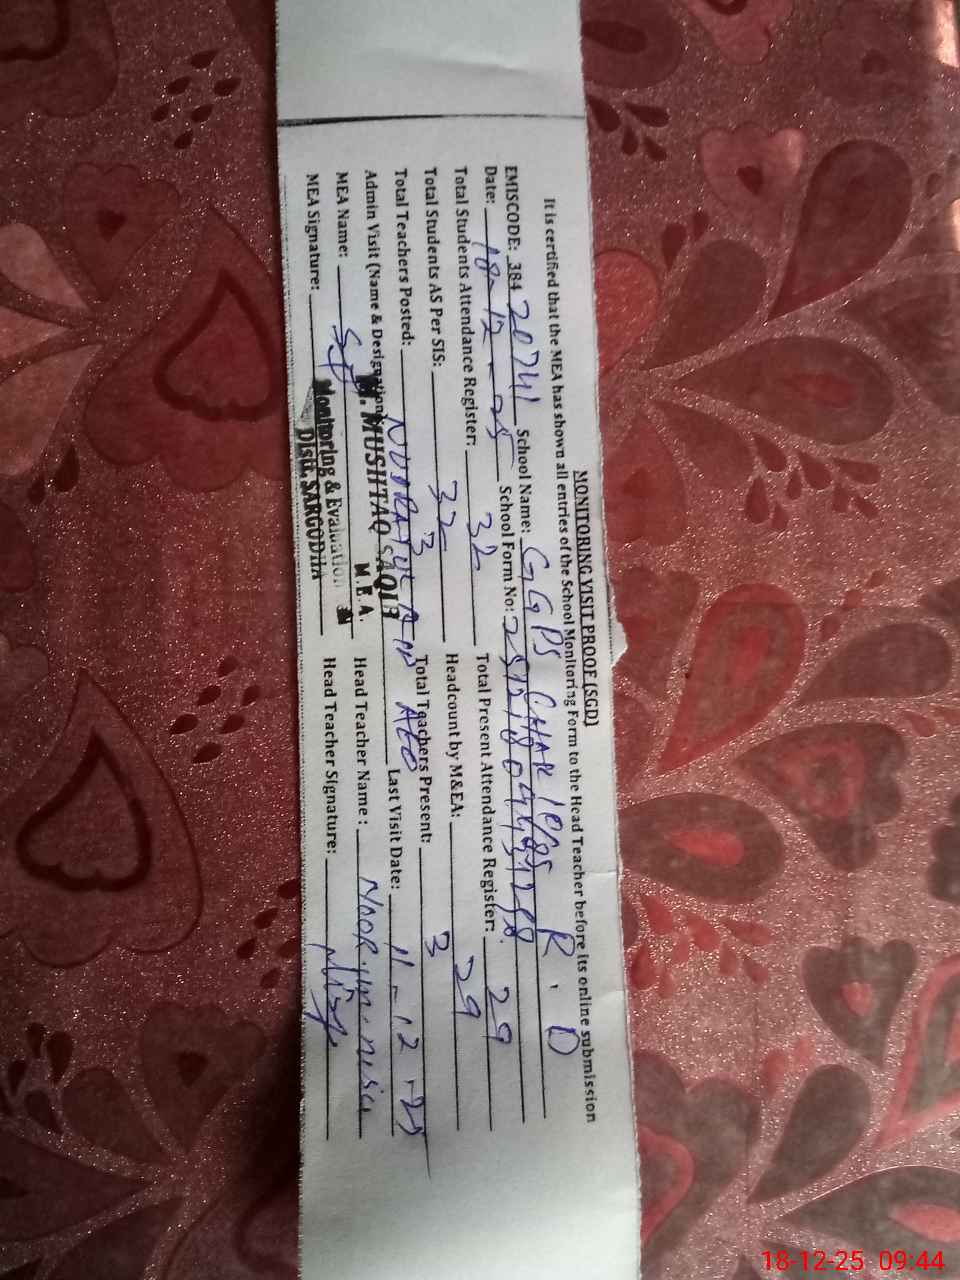 MONITORING VISIT PROOF (SGD)
It is certified that the MEA has shown all entries of the School Monitoring Form to the Head Teacher before its online submission
EMISCODE: 384 20741 School Name: GGPS CHAK R.D
Date: 18-12-25 School Form No:
Total Students Attendance Register: 32 Total Present Attendance Register: 29
Total Students AS Per SIS: 32 Headcount by M&EA: 29
Total Teachers Posted: 3 Total Teachers Present: 3
Admin Visit (Name & Designation AEO Last Visit Date: 11-12-25
MEA Name: Head Teacher Name: NOOR.un.nisa
MEA Signature: Head Teacher Signature:
M. MUSHTAQ SAQIB
M.E.A.
Monitoring & Evaluation
Distt. SARGODHA
18-12-25 09:44